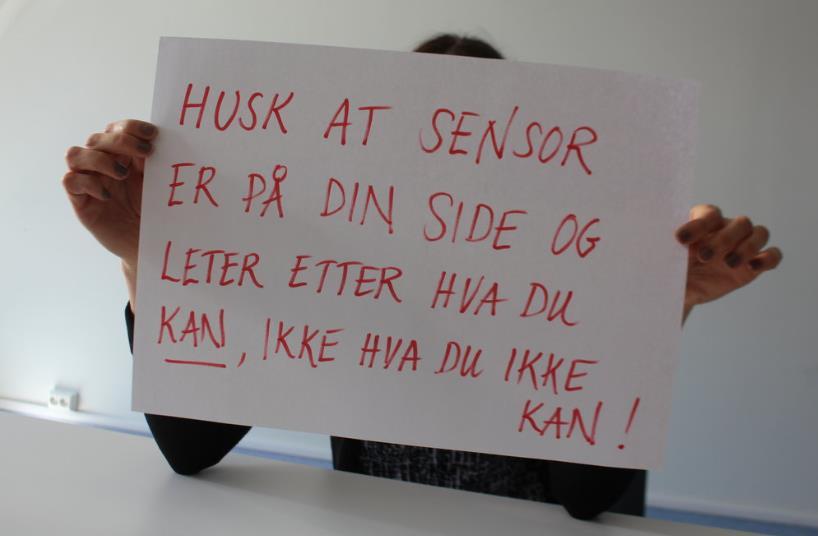 HUSK AT SENSOR
ER PÅ DIN SIDE OG
LETER ETTER HVA DU
KAN, IKKE HVA DU IKKE
KAN!